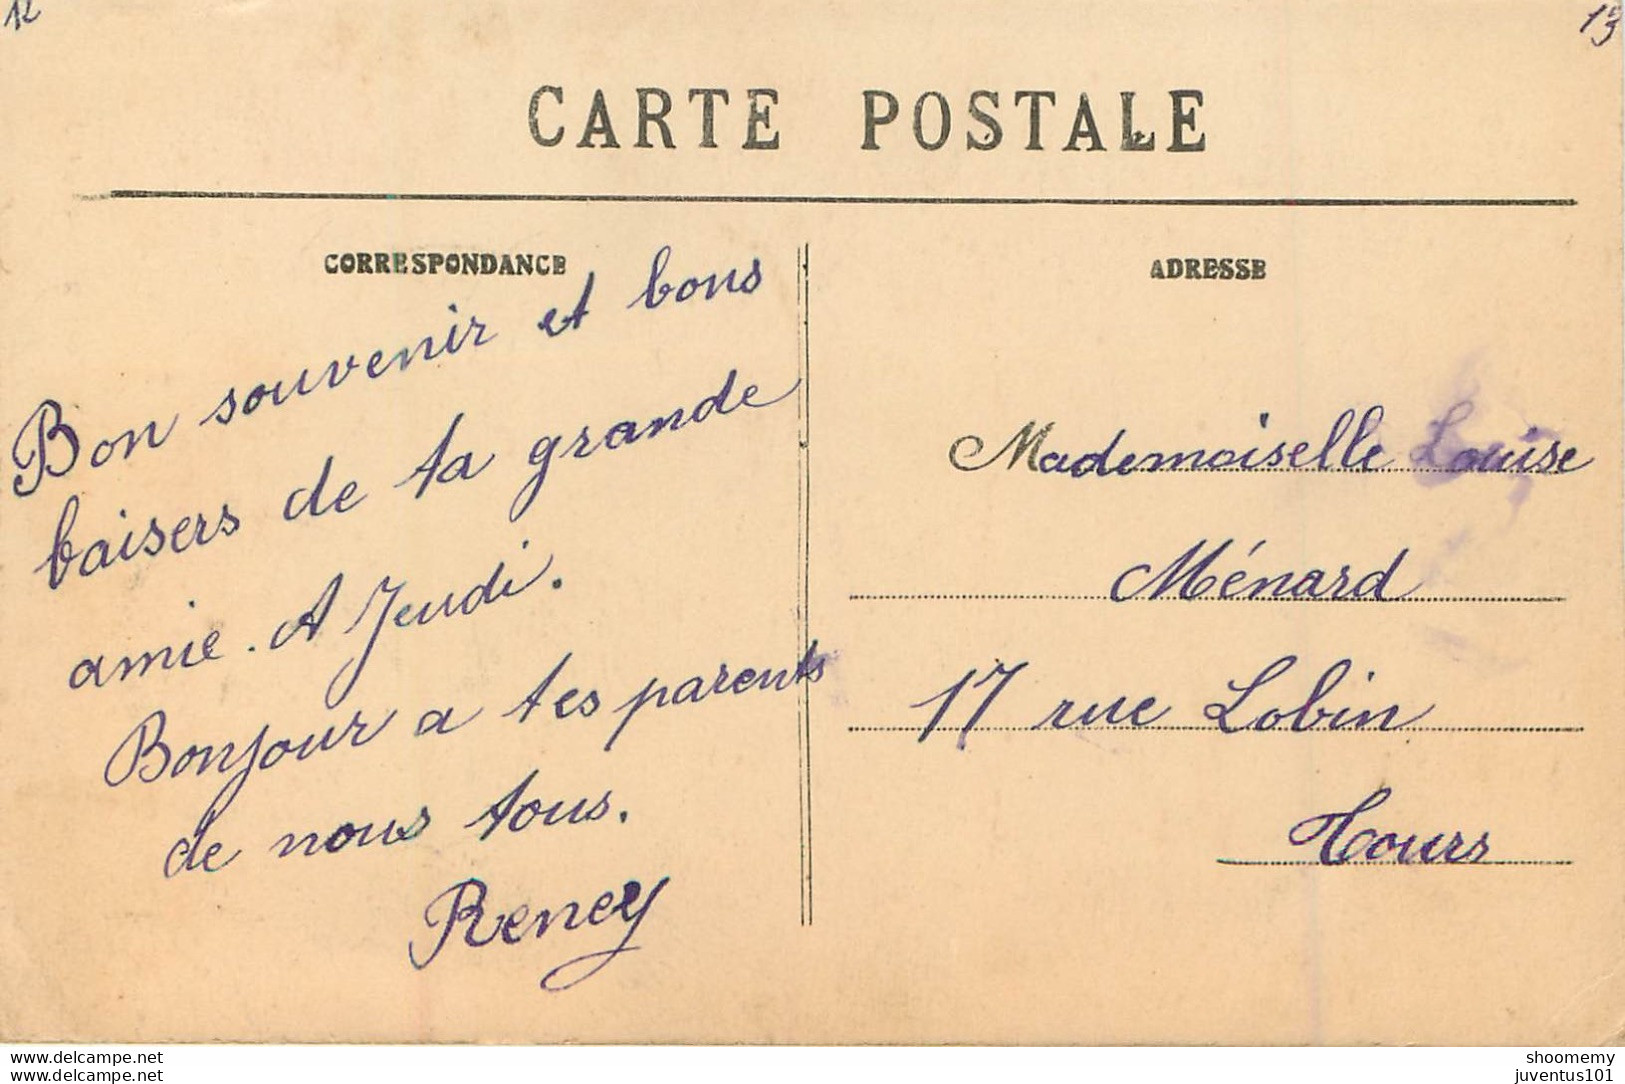 12
13
CARTE POSTALE
CORRESPONDANCE
Bon souvenir et bons
baisers de ta grande
amie. A Jeudi.
Bonjour a tes parents
de nous tous.
Reney
ADRESSE
Mademoiselle Louise
Ménard
17 rue Lobin
Tours
www.delcampe.net
www.delcampe.net
shoomemy
juventus101